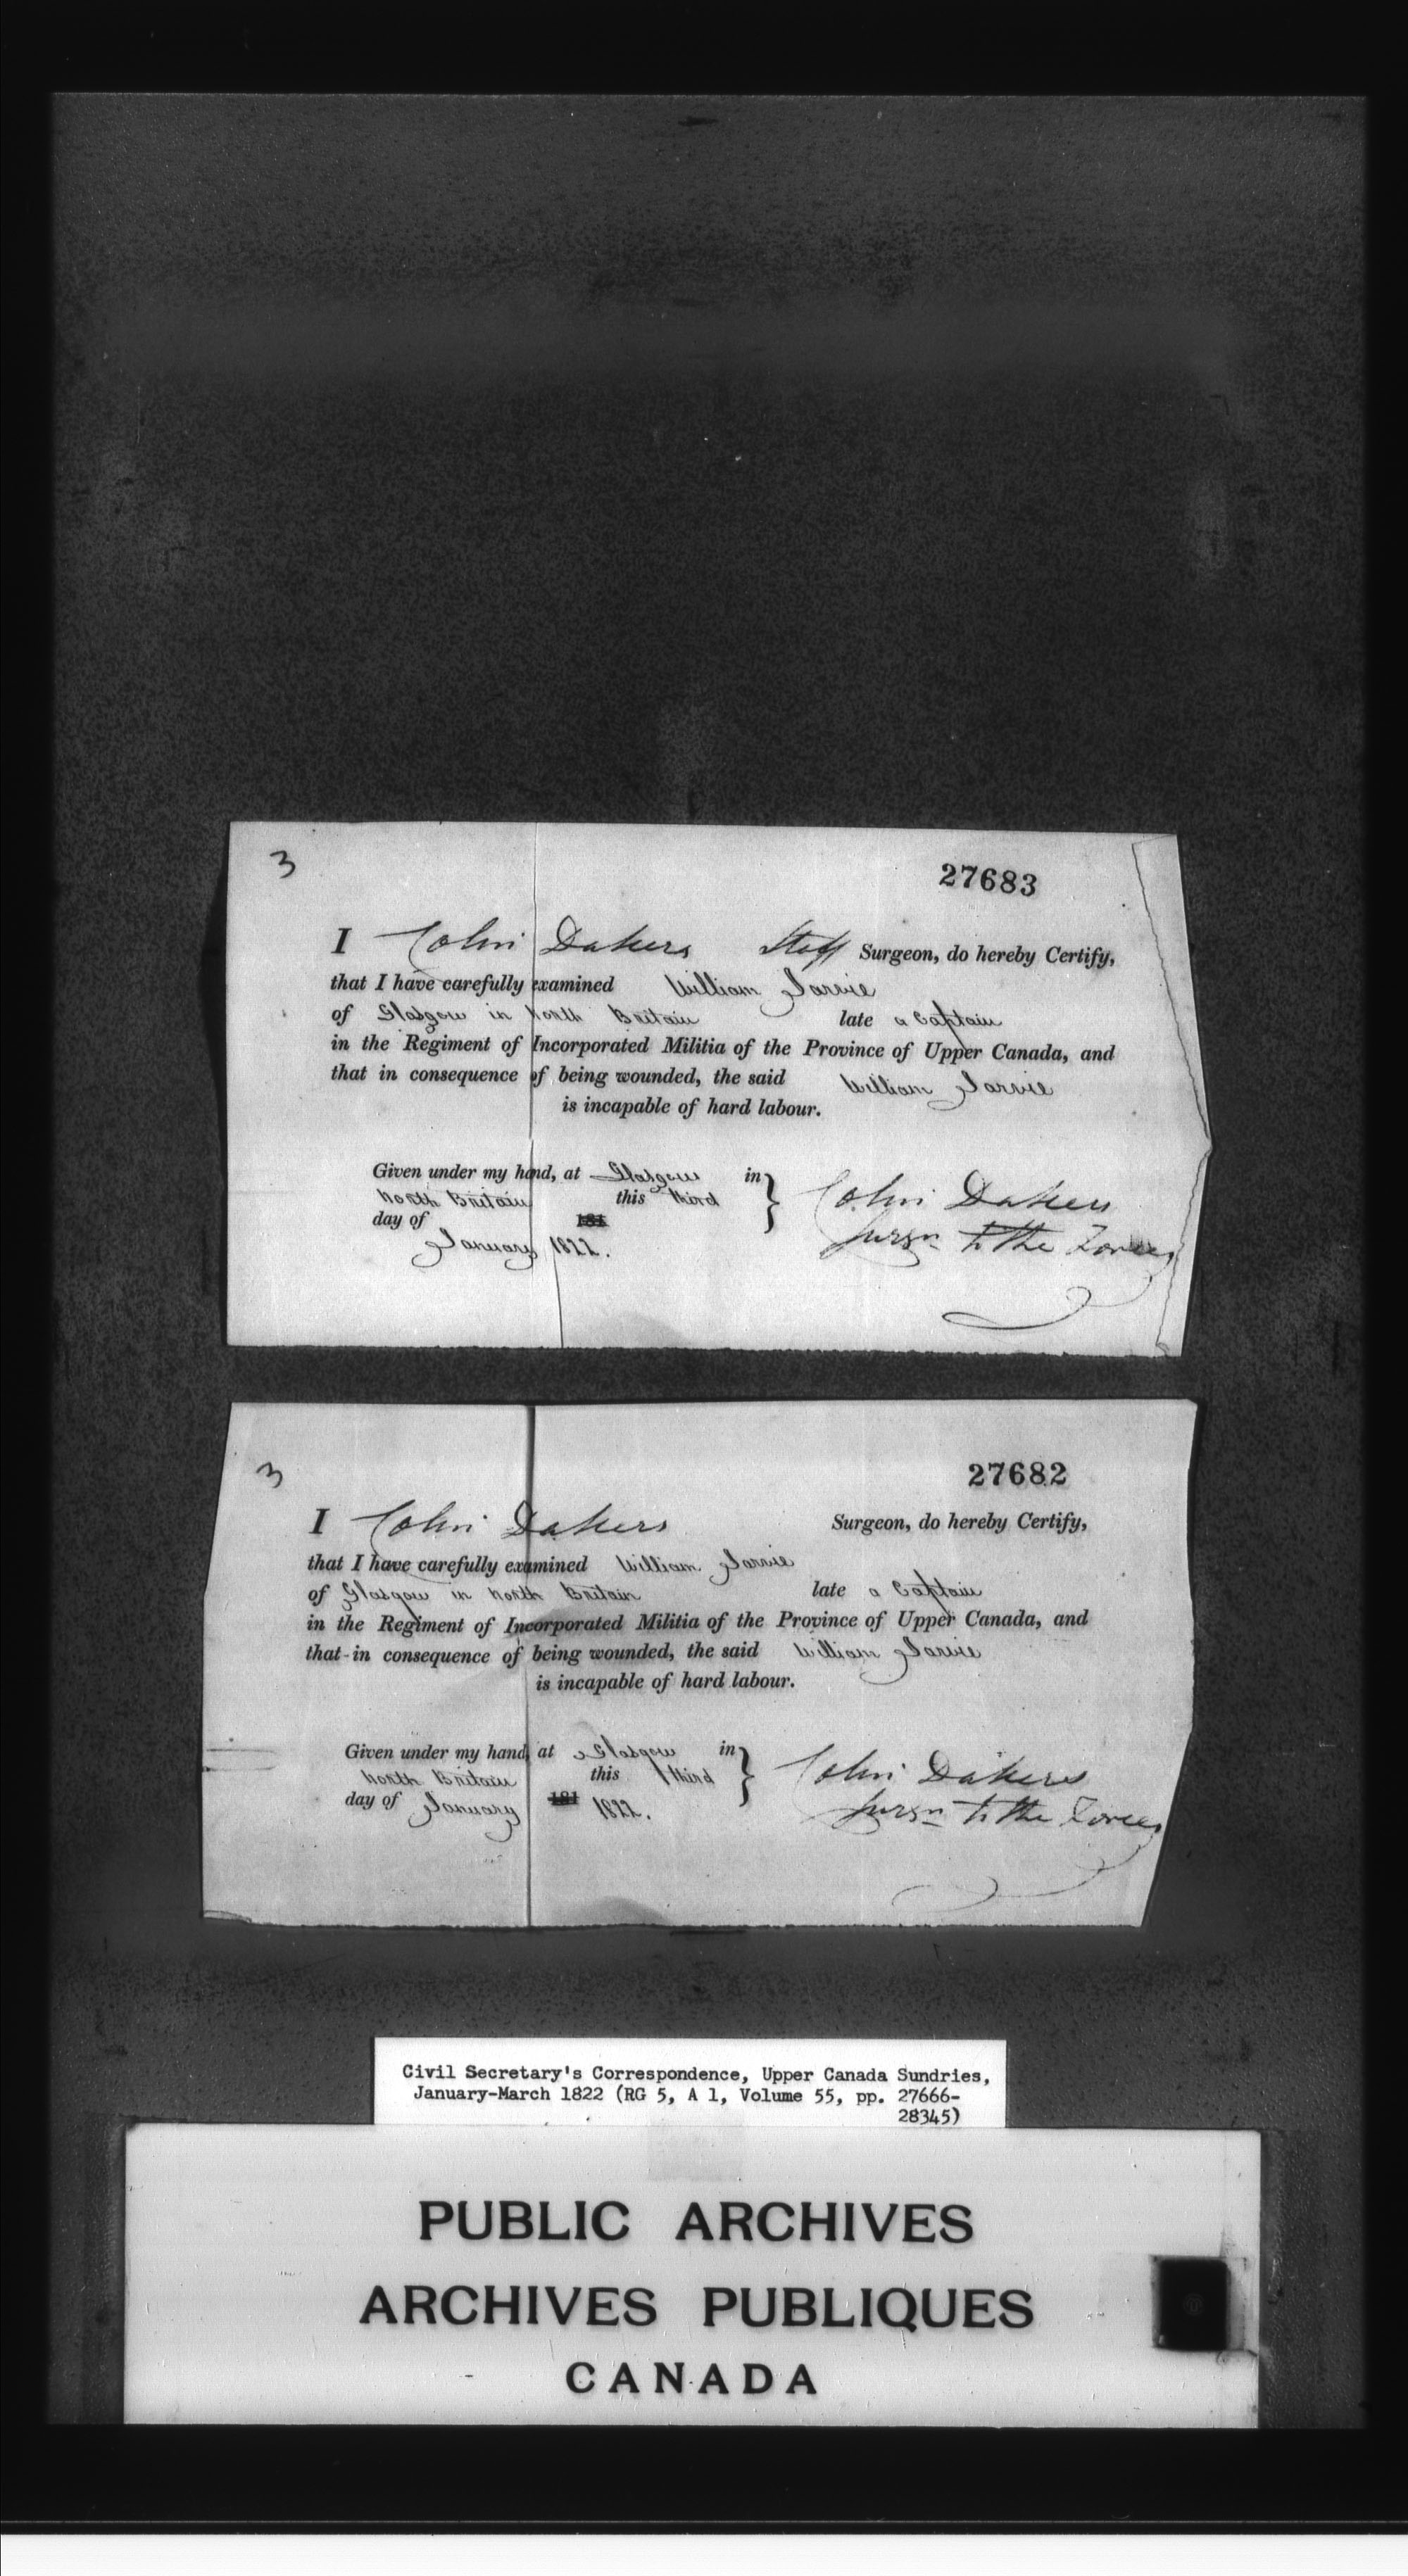 3
27683
I Colin Dakers Staff Surgeon, do hereby Certify,
that I have carefully examined William Jarvie
of Glasgow in North Britain late a Captain
in the Regiment of Incorporated Militia of the Province of Upper Canada, and
that in consequence of being wounded, the said William Jarvie
is incapable of hard labour.
Given under my hand, at Glasgow in
North Britain this third
day of 181
January 1822.
Colin Dakers
Surgn to the Forces
3
27682
I Colin Dakers Surgeon, do hereby Certify,
that I have carefully examined William Jarvie
of Glasgow in North Britain late a Captain
in the Regiment of Incorporated Militia of the Province of Upper Canada, and
that in consequence of being wounded, the said William Jarvie
is incapable of hard labour.
Given under my hand, at Glasgow in
North Britain this third
day of January 181 1822.
Colin Dakers
Surgn to the Forces
Civil Secretary's Correspondence, Upper Canada Sundries,
January-March 1822 (RG 5, A 1, Volume 55, pp. 27666-
28345)
PUBLIC ARCHIVES
ARCHIVES PUBLIQUES
CANADA